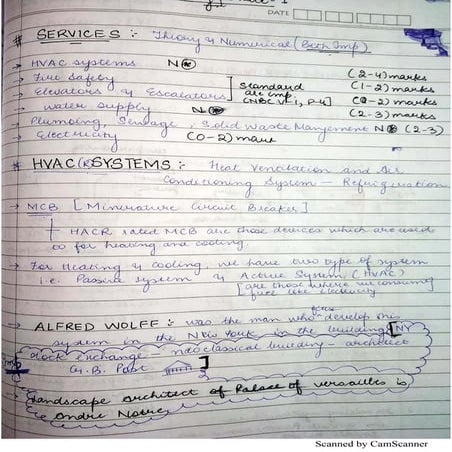 DATE
# SERVICES :- Theory & Numerical (Both Imp)
→ HVAC systems N⊛ (2-4) marks
→ Fire Safety (1-2) marks
→ Elevators & Escalators ] Standard are imp (NBC V-1, P-4] (0-2) marks
→ Water supply N⊛ (2-3) marks
→ Plumbing, Sewage & Solid Waste Mangement N⊛ (2-3)
→ Electricity (0-2) mark
# HVAC(R) SYSTEMS :- Heat Ventilation and Air
Conditioning System - Refrigeration
→ MCB [Minirature Circuit Breaker]
HACR rated MCB are those devices which are used
for heating and cooling
→ For Heating & cooling, we have two type of system
i.e. Passive system & Active System (HVAC)
[are those where we consume
fuel like electricity
→ ALFRED WOLFF :- was the man who develop
system in the New York in the building [NY
stock exchange neoclassical building - architect
G.B. Post ]
→ Landscape architect of Palace of Versailles is
Andre Notre
Scanned by CamScanner